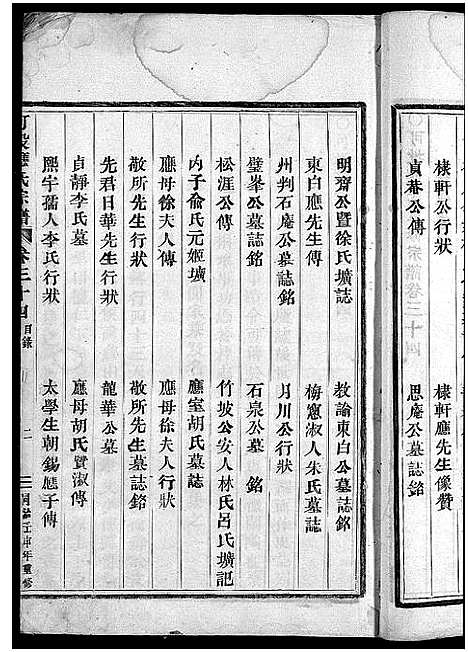 棣軒公行狀 棣軒應先生像贊
貞菴公傳 思菴公墓誌銘
明齋公暨徐氏壙誌 教諭東白公墓誌銘
東白應先生傳 梅窻淑人朱氏墓誌
州判石庵公墓誌銘 月川公行狀
璧峯公墓誌銘 石泉公墓 銘
松涯公傳 竹坡公安人林氏呂氏壙記
內子俞氏元姬壙 應室胡氏墓誌
應母徐夫人傳 應母徐夫人行狀
敬所先生行狀 敬所先生墓誌銘
先君日華先生行狀 龍華公墓
貞靜李氏墓 應母胡氏賢淑傳
熙宇孺人李氏行狀 太學生朝錫應子傳
應氏宗譜 卷三十四 目錄 二 年重修